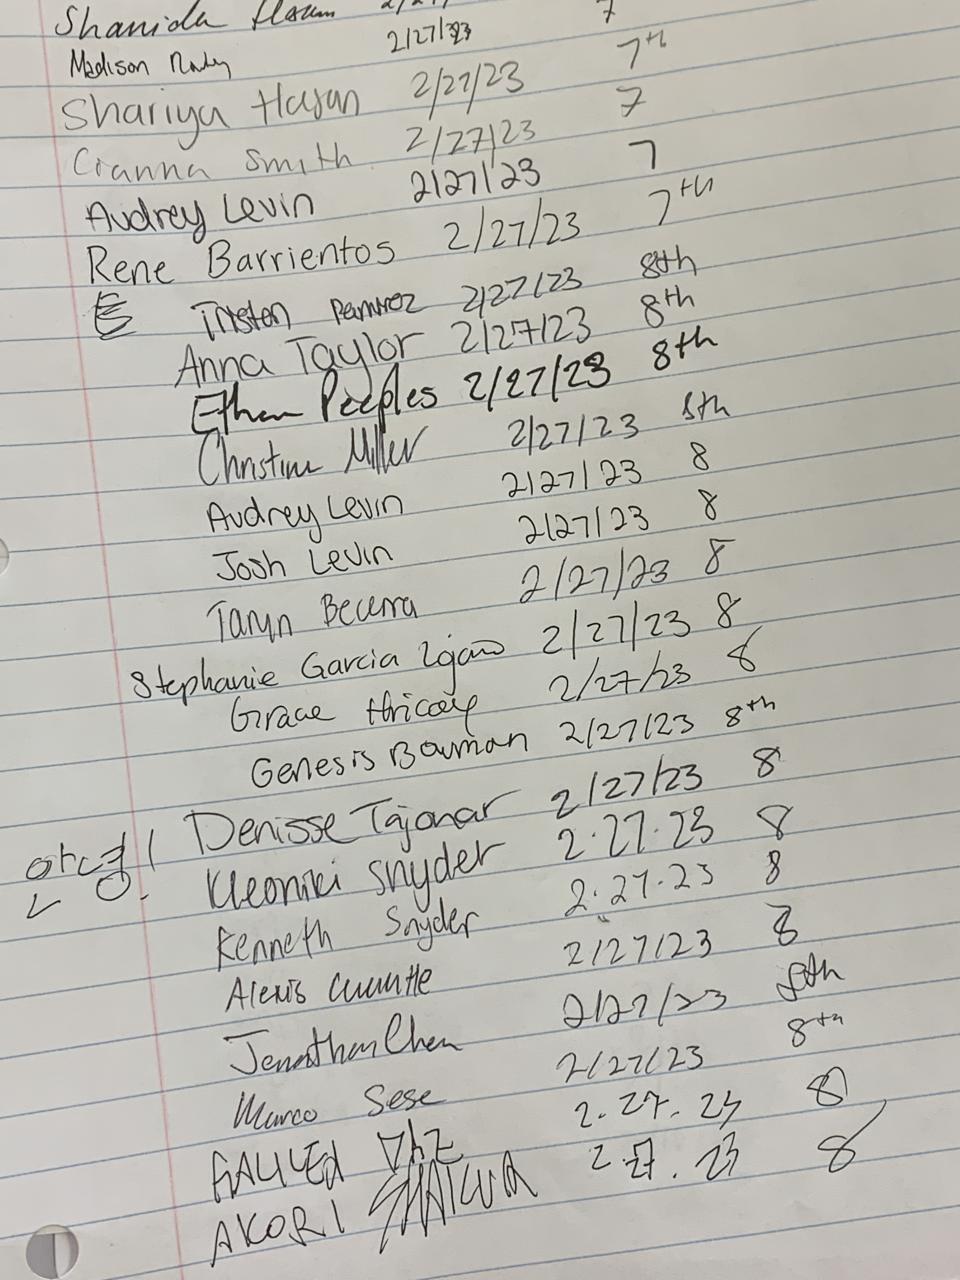 Shanida
Madison 2/27/23 7
Shariya Hasan 2/27/23 7th
Cianna Smith 2/27/23 7
Audrey Levin 2/27/23 7
Rene Barrientos 2/27/23 7th
Tristen Ramirez 2/27/23 8th
Anna Taylor 2/27/23 8th
Ethan Peeples 2/27/23 8th
Christine Miller 2/27/23 8th
Audrey Levin 2/27/23 8
Josh Levin 2/27/23 8
Taryn Becerra 2/27/23 8
Stephanie Garcia 2/27/23 8
Grace 2/27/23 8
Genesis Bowman 2/27/23 8th
Denisse Tajonar 2/27/23 8
Kleoniki Snyder 2.27.23 8
Kenneth Snyder 2.27.23 8
Alexis 2/27/23 8
Jonathan Chen 2/27/23 8th
Marco Sese 2/27/23 8th
2.27.23 8
AKORI 2.27.23 8